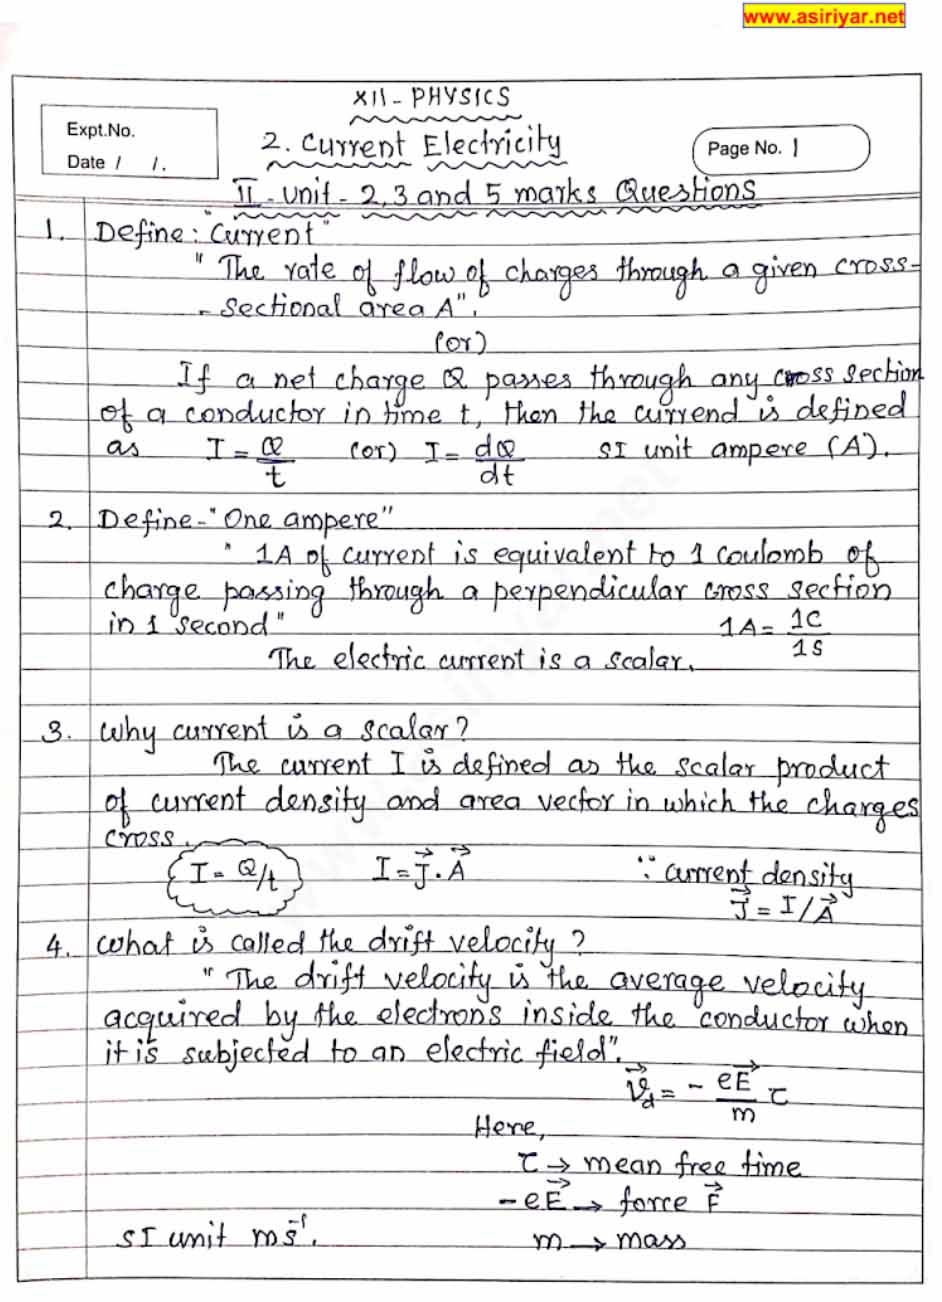 www.asiriyar.net
XII - PHYSICS
Expt.No.
Date / /.
2. Current Electricity
Page No. 1
II - Unit - 2, 3 and 5 marks Questions
1. Define: "Current"
" The rate of flow of charges through a given cross-
- sectional area A".
(or)
If a net charge Q passes through any cross section
of a conductor in time t, then the currend is defined
as I = Q/t (or) I = dQ/dt SI unit ampere (A).
2. Define - "One ampere"
" 1A of current is equivalent to 1 coulomb of
charge passing through a perpendicular cross section
in 1 second" 1A = 1C/1S
The electric current is a scalar.
3. Why current is a scalar?
The current I is defined as the scalar product
of current density and area vector in which the charges
cross.
I = Q/t I = J⃗ . A⃗ ∵ current density
J⃗ = I/A⃗
4. What is called the drift velocity?
" The drift velocity is the average velocity
acquired by the electrons inside the conductor when
it is subjected to an electric field".
V⃗d = - eE⃗/m τ
Here,
τ → mean free time
-eE⃗ → force F⃗
SI unit ms⁻¹. m → mass